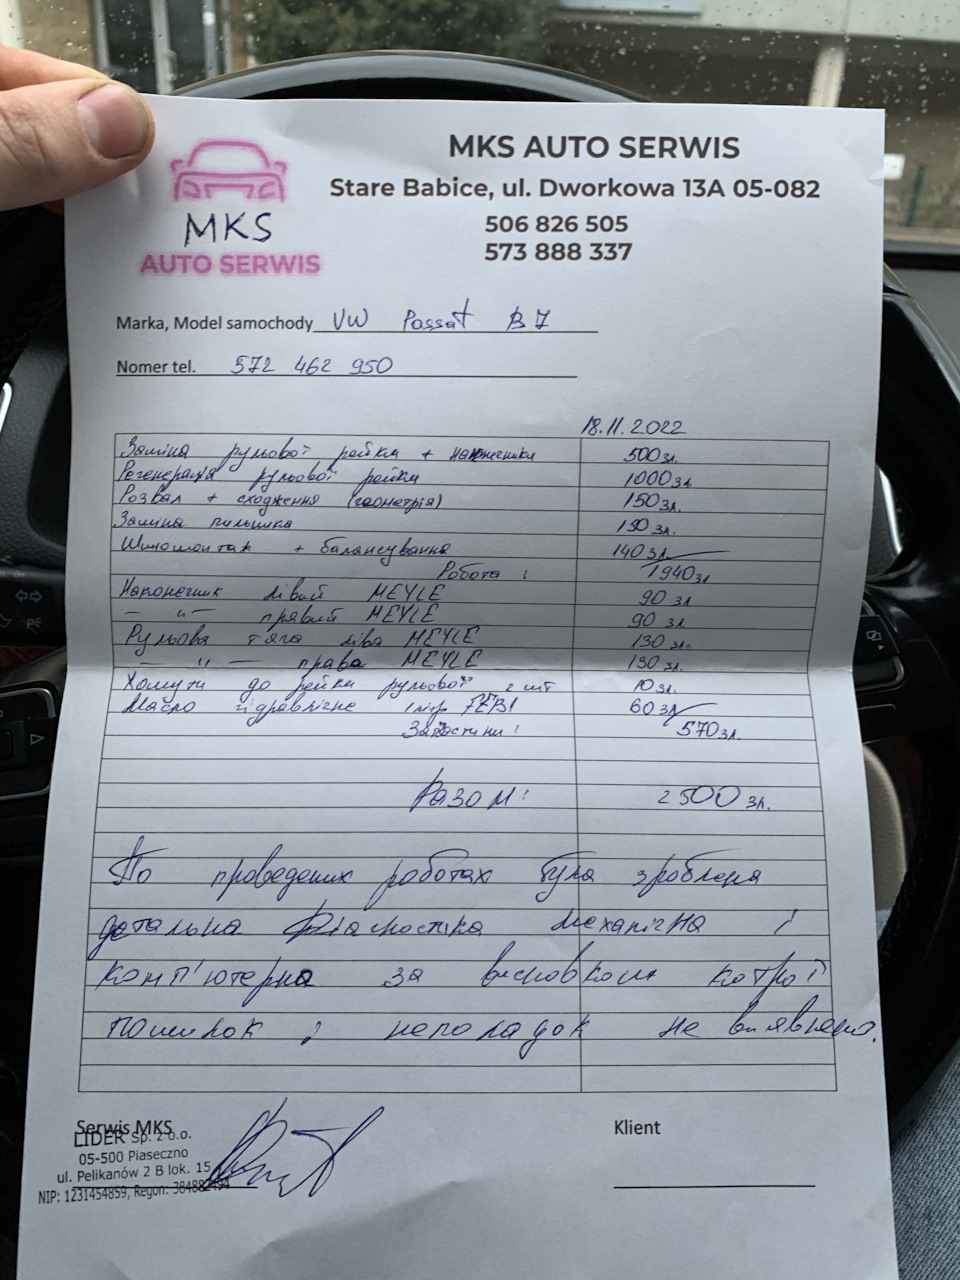 MKS AUTO SERWIS
Stare Babice, ul. Dworkowa 13A 05-082
506 826 505
573 888 337
MKS
AUTO SERWIS
Marka, Model samochody VW Passat B7
Nomer tel. 572 462 950
18.11.2022
Заміна рульової рейки + наконечники 500 зл.
Регенерація рульової рейки 1000 зл
Розвал + сходження (геометрія) 150 зл.
Заміна пильника 150 зл.
Шиномонтаж + балансування 140 зл
Робота: 1940 зл
Наконечник лівий MEYLE 90 зл
— " — правий MEYLE 90 зл.
Рульова тяга ліва MEYLE 130 зл.
— " — права MEYLE 130 зл.
Хомути до рейки рульової 2 шт 10 зл.
Масло гідравлічне 1 літр FEBI 60 зл
Запчастини: 570 зл.
Разом: 2500 зл.
По проведених роботах була зроблена
детальна діагностіка механічна і
комп'ютерна за висновком котрої
помилок і неполадок не виявлено.
Serwis MKS
Klient
LIDER Sp. z o.o.
05-500 Piaseczno
ul. Pelikanów 2 B lok. 15
NIP: 1231454859, Regon: 384882494